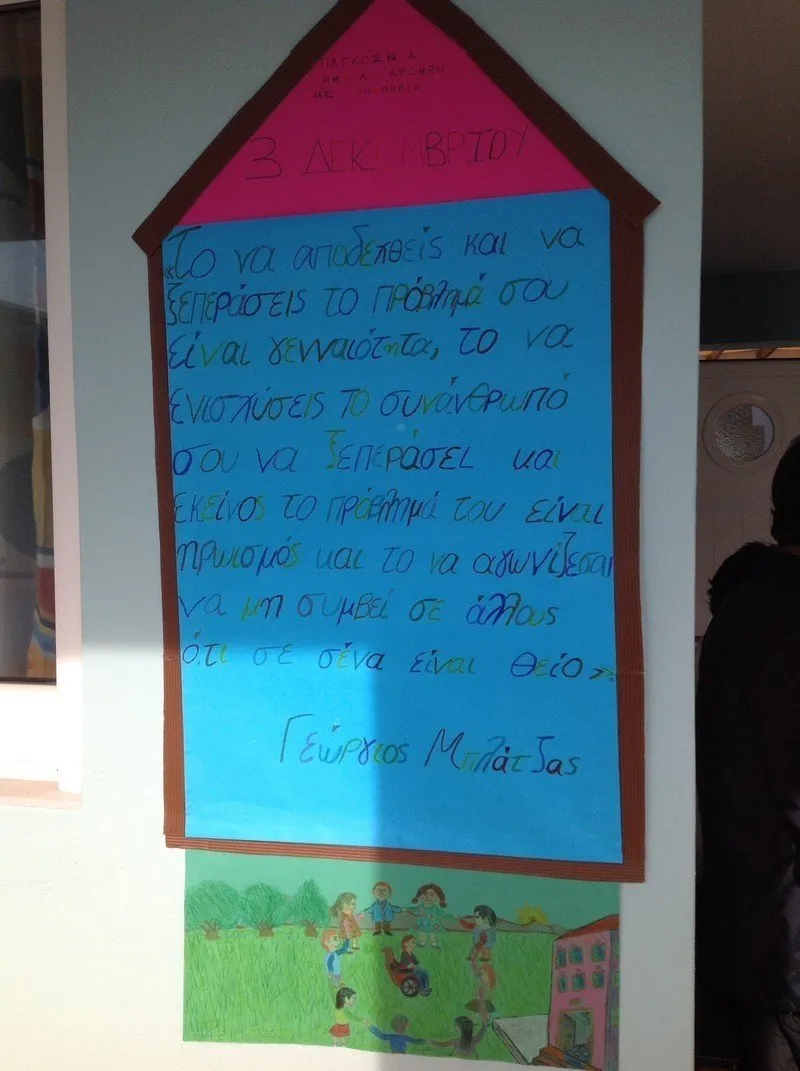 ΠΑΓΚΟΣΜΙΑ
ΗΜΕΡΑ ΑΤΟΜΩΝ
ΜΕ ΑΝΑΠΗΡΙΑ
3 ΔΕΚΕΜΒΡΙΟΥ
«Το να αποδεχθείς και να
ξεπεράσεις το πρόβλημά σου
είναι γενναιότητα, το να
ενισχύσεις το συνάνθρωπό
σου να ξεπεράσει και
εκείνος το πρόβλημά του είναι
ηρωισμός και το να αγωνίζεσαι
να μη συμβεί σε άλλους
ό,τι σε σένα είναι θείο».
Γεώργιος Μπλάτζας